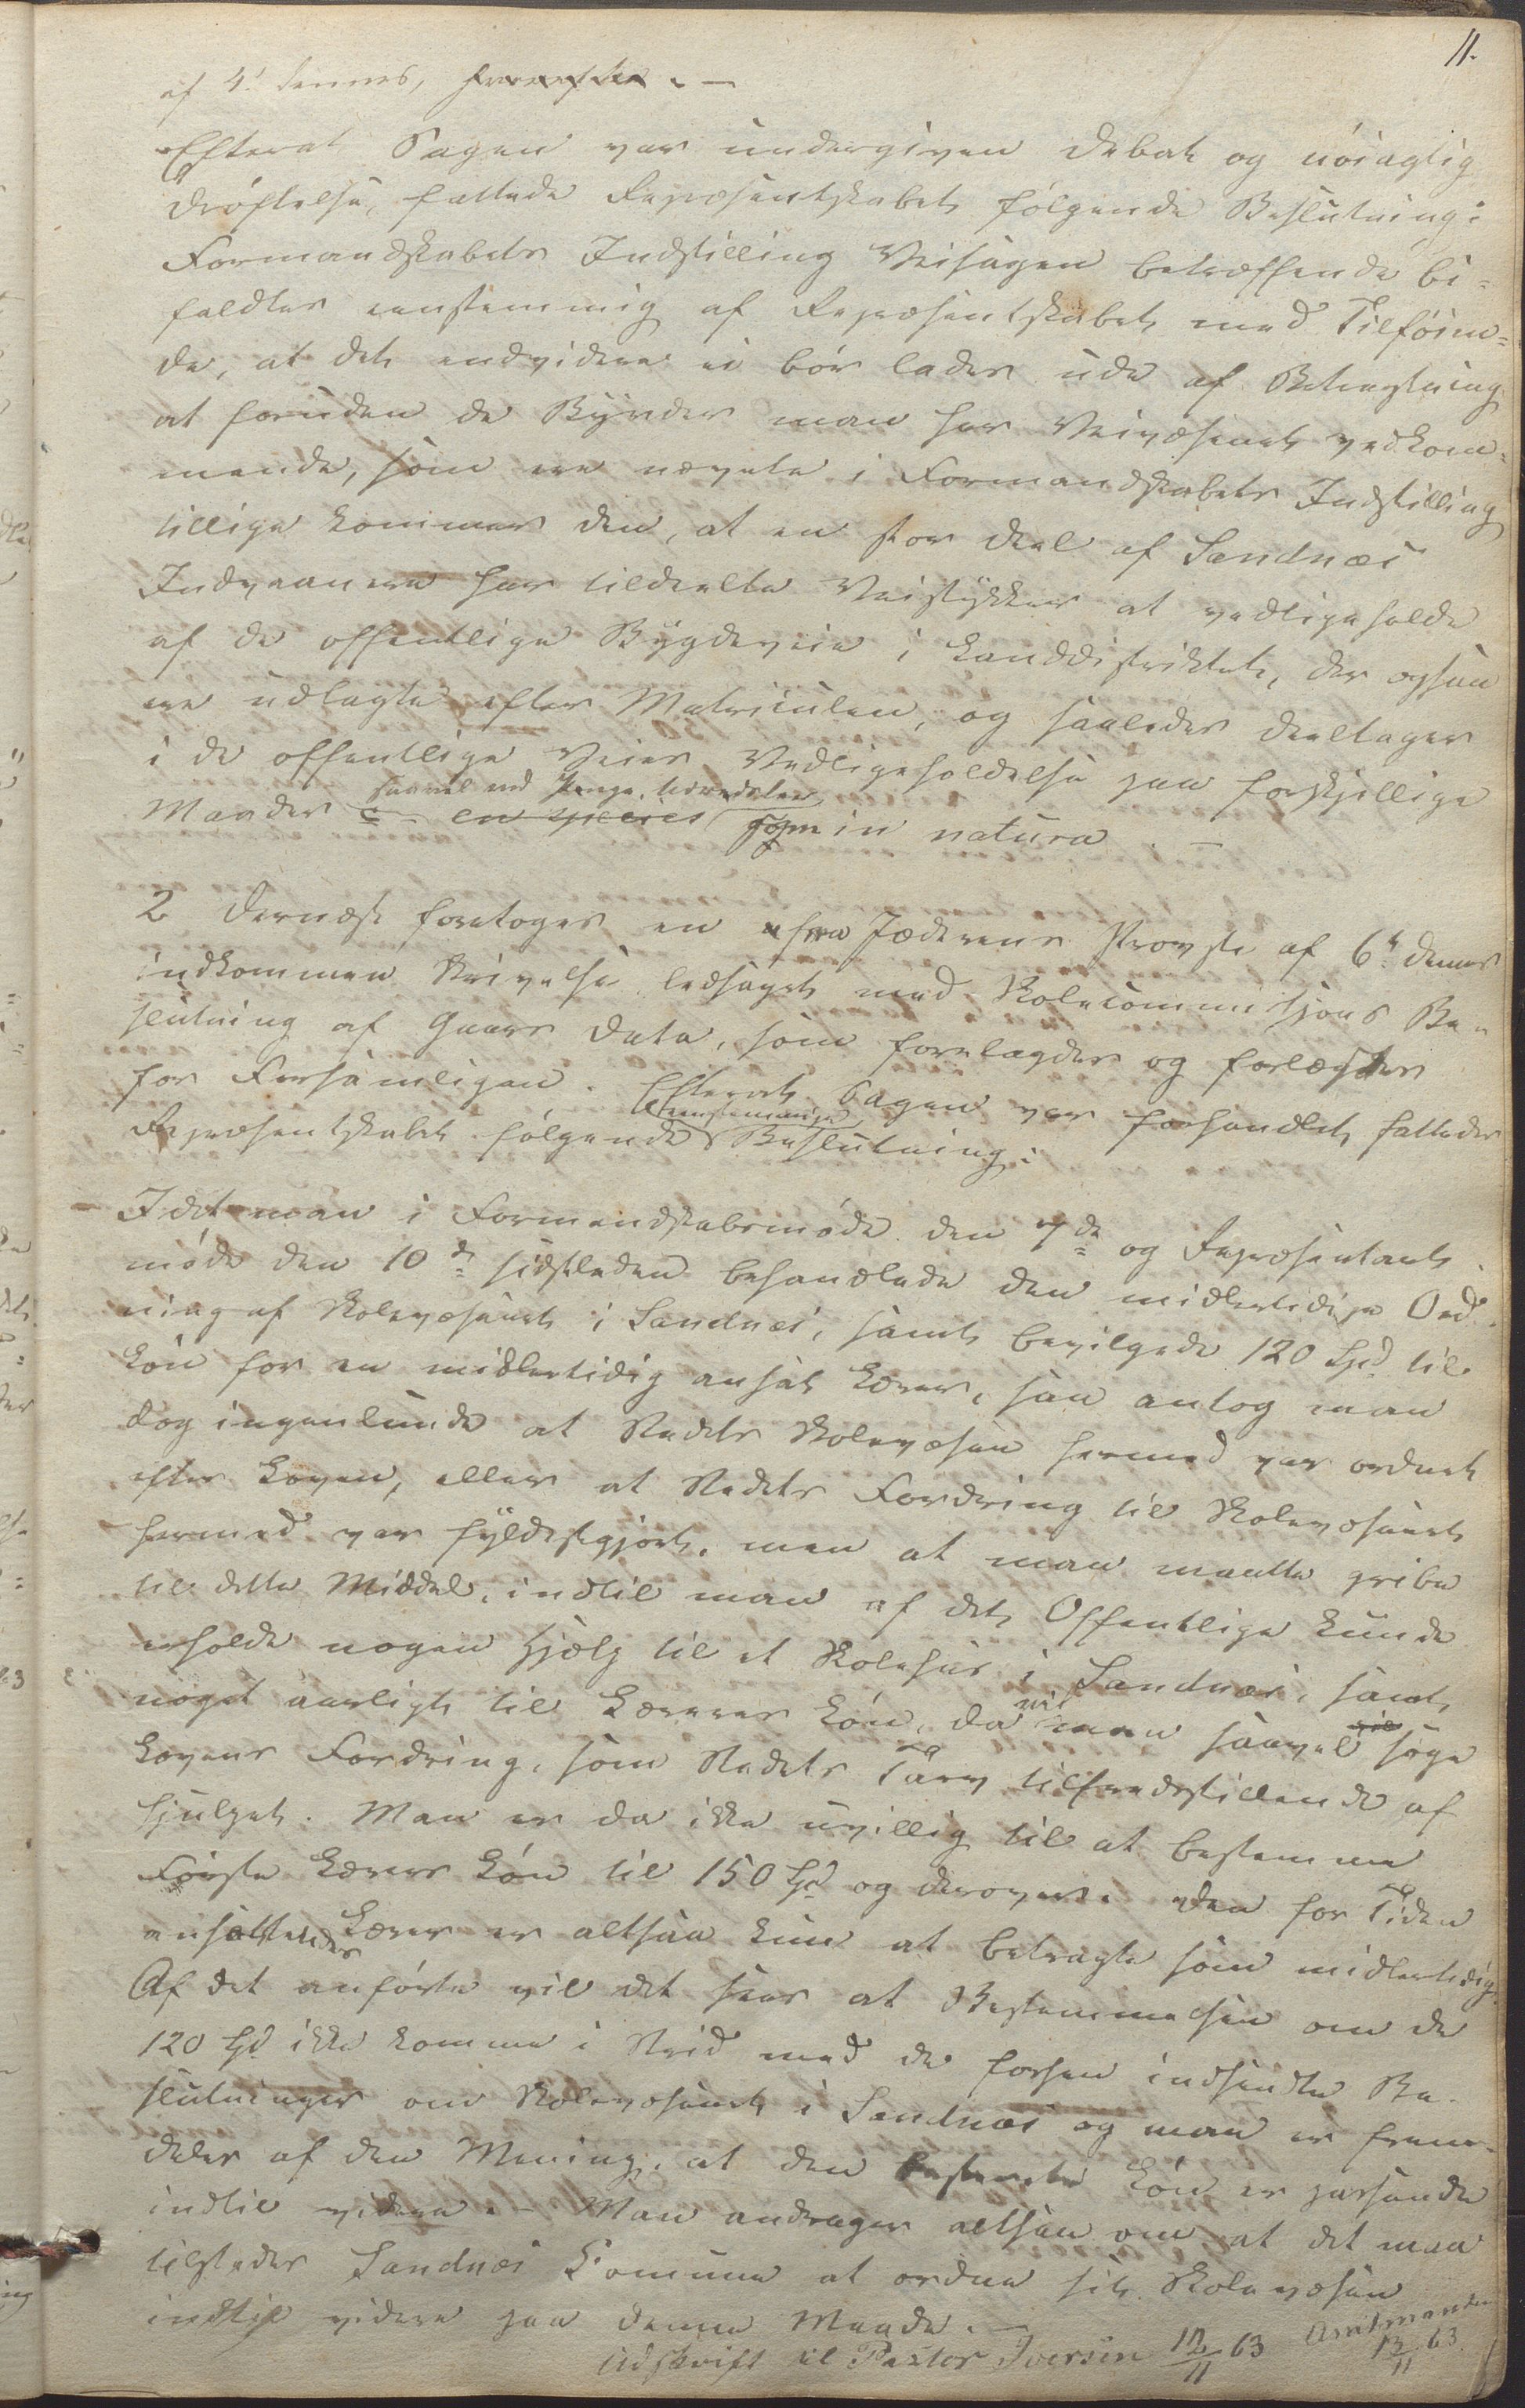 11.
af 4' dennes,
Efterat Sagen var undergiven Debat og nöiagtig
Dröftelse, fattede Repræsentskabet fölgende Beslutning:
Formandskabets Indstilling Veisagen betræffende bi=
faldtes eenstemmig af Repræsentskabet med Tilföien=
de, at det endvidere ei bör lades ude af Betragtning
at foruden de Byrder man har Veivæsenet vedkom=
mende, som ere nævnte i Formandskabets Indstilling
tillige kommer den, at en stor Deel af Sandnæs
Indvaanere har tildeelte Veistykker at vedligeholde
af de offentlige Bygdeveie i Landdistriktet, der ogsaa
ere udlagte efter Matriculen, og saaledes deeltager
i de offentlige Veies Vedligeholdelse paa forskjellige
saavel ved Penge, Udredelser
Maader en species som in natura. —
2 Dernæst foretoges en fra Jæderens Provsti af 6te dennes
indkommen Skrivelse ledsaget med Skolecommissjons Be=
slutning af Gaars Dato, som forelagdes og forlæstes
for Forsamligen. Efterat Sagen var forhandlet, fattedes
eenstemmige
Repræsentskabet fölgende Beslutning:
- Idet man i Formandskabsmöde den 7de og Repræsentant
möde den 10de sidstleden behandlede den midlertidige Ord=
ning af Skolevæsenet i Sandnæs, samt bevilgede 120 Spd til
Lön for en midlertidig ansat Lærer, saa antog man
dog ingenlunde at Stedets Skolevæsen hermed var ordnet
efter Loven, eller at Stedets Fordring til Skolevæsenet
hermed var fyldestgjort, men at man maatte gribe
til dette Middel, indtil man af det Offentlige kunde
erholde nogen Hjælp til et Skolehus i Sandnæs, samt
noget aarligt til Lærerens Lön, da vil man saavel söge
Lovens Fordring, som Stedets Tarv tilfredsstillende af
hjulpet. Man er da ikke uvillig til at bestemme
Förste Lærers Lön til 150 Spd og derover. Den for Tiden
ansættendes Lærer er altsaa kun at betragte som midlertidig.
Af det anförte vil det sees at Bestemmelsen om de
120 Spd ikke komme i Strid med de forhen indsendte Be=
slutninger om Skolevæsenet i Sandnæs og man er frem=
deles af den Mening, at den bestemte Lön er passende
indtil videre. — Man andrager altsaa om, at det maa
tilstedes Sandnæs Comune at ordne sit Skolevæsen
indtil videre paa denne Maade. —
Udskrift til Pastor Iversen 12/11 63 Amtmanden 12/11 63.